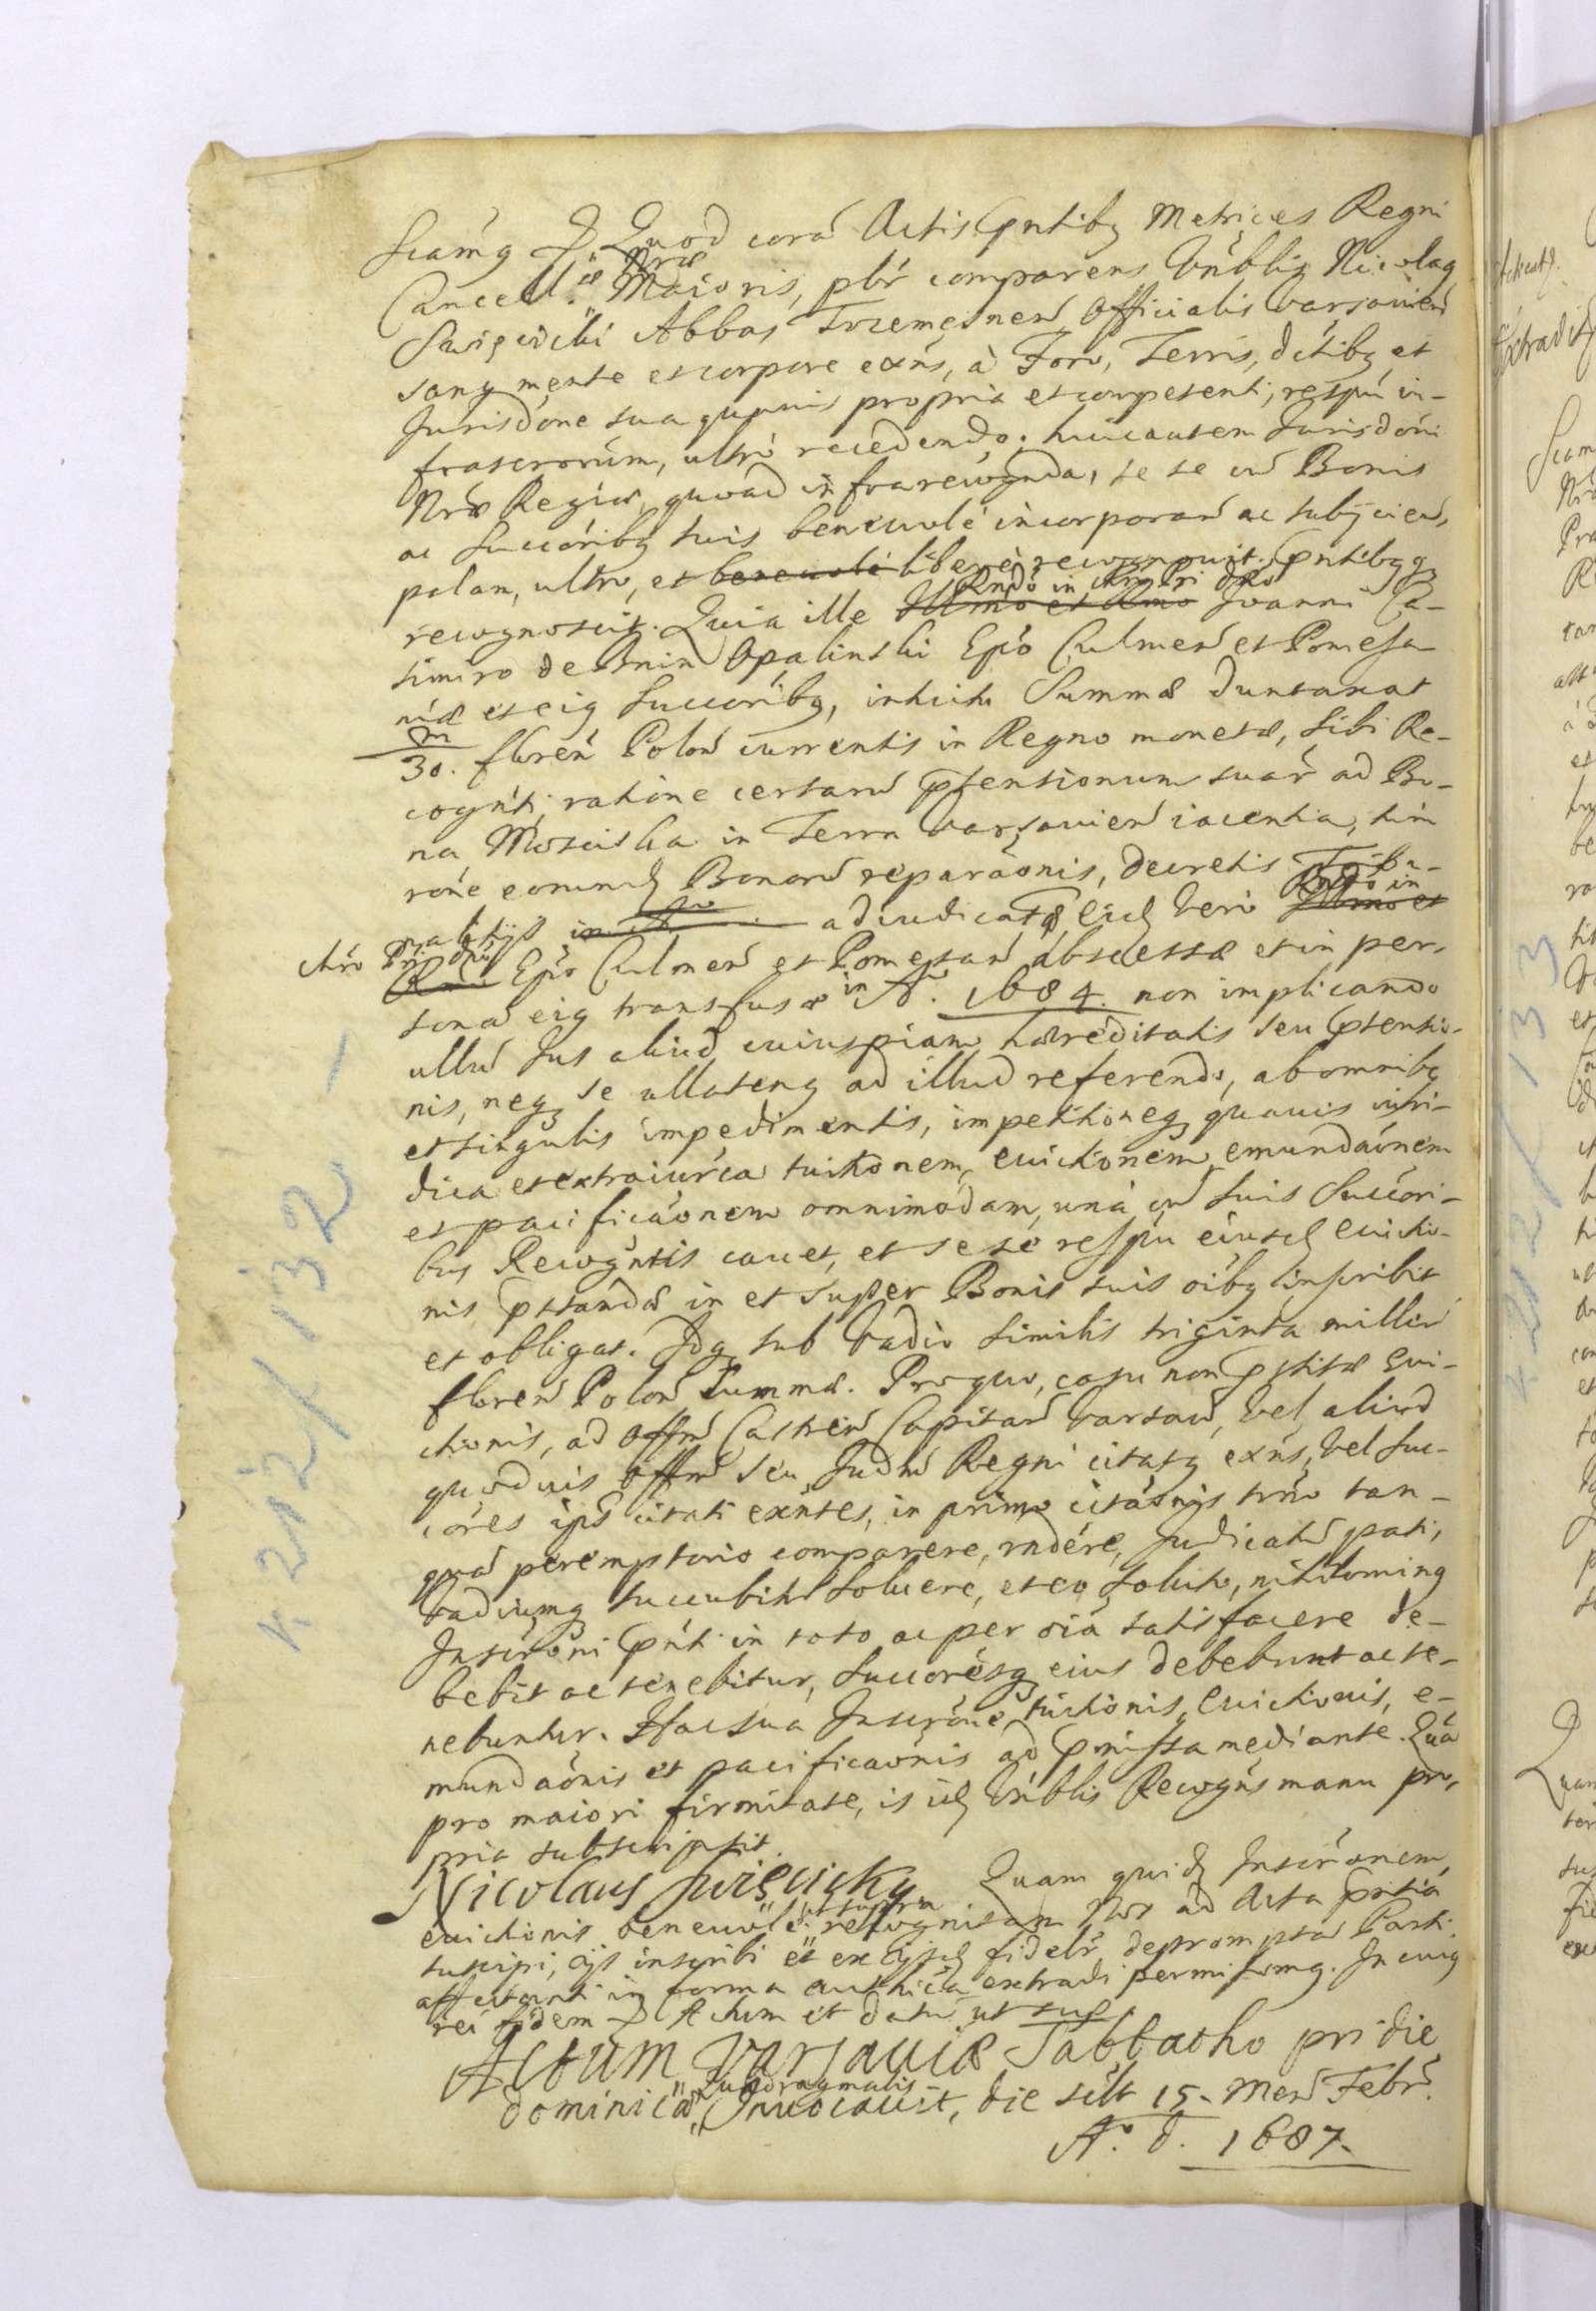 Scamq Quod corã Actis pntibq Metrices Regni
Cancell. Nrae Maioris, plr comparens Vnblis Nicolaq
Swięcicki Abbas Trzemesnen Officialis Varsavien
sanq mente et corpore exns, à Foro, Terris, dctibq et
Jurisdone sua quavis propria et competenti, respu in-
frascrorum, ultro recedendo; huic autem Jurisdoni
Nrae Regiae, quoad infra recognda, se se cu Bonis
ac Succoribq suis benevole incorporan ac subijcien,
palam, ultro, et benevole libere recognovit. pntibqq
recognoscit. Quia ille Illmo et Rmo Rndo in chro Pri dno Joanni Ca-
simiro de Bnin Opalinski Epo Culmen et Pomesa-
niae et eiq Succoribq, intuitu Summae duntaxat
m
30. floren Polon currentis in Regno monetae, sibi Re-
cognti, ratione certaru ptensionum suar ad Bo-
na Mosciska in Terra Varsavien iacentia, tum
rone eorund Bonoru reparaonis, decretis Tribu-
nalitijs adiudicatae, eid vero Illmo et Rndo in
chro Pri dno Rmo Epo Culmen et Pomesan abscessae et in per-
sona eiq transfusae in A. 1684. non implicando
ullu Jus aliud cuiuspiam haereditatis seu ptensio-
nis, neq se ullatenq ad illud referendo, ab omnibq
et singulis impedimentis, impetitioneq quavis iuri-
dica et extraiurca tuitionem, evictionem emundaonem
et pacificaonem omnimodam, una cu suis Succori-
bus Recogntis cavet, et se se respu eiusd evictio-
nis pstandae in et super Bonis suis oibq inscribit
et obligat. Idq sub Vadio similis triginta milliu
floren Polon Summae. Pro quo, casu non pstitae evi-
ctionis, ad Offm Castren Capitan Varsav, vel aliud
quodvis Offm seu Judm Regni citatq exns, vel Suc-
cores ipsi citati exntes, in primo citaonis trno tan-
qua peremptorio comparere, rndere, Judicatu pati,
Vadiumq succubitu solvere, et eo soluto, nihilominq
Inscroni pnti in toto ac per oia satisfacere de-
bebit ac tenebitur, Succoresq eius debebunt ac te-
nebuntur. Hac sua Inscrone tuitionis, evictionis, e-
mundaonis et pacificaonis ad pmissa mediante. Qua
pro maiori firmitate, is id Vnblis Recogns manu pro-
pria subscripsit.
Nicolaus Swięcicky Quam quid Inscronem,
evictionis benevole ut supra recognitam Nos ad Acta pntia
suscipi, ijs inscribi et ex ijsd fidelr depromptã Parti
affectanti in forma authica extradi permisimq. In cuiq
rei fidem Actum et datu ut sup.
Actum Varsaviae Sabbatho pridie
dominicae Quadragesimalis Invocavit, die sclt 15. Men Febr.
A. d. 1687.
K 212/132